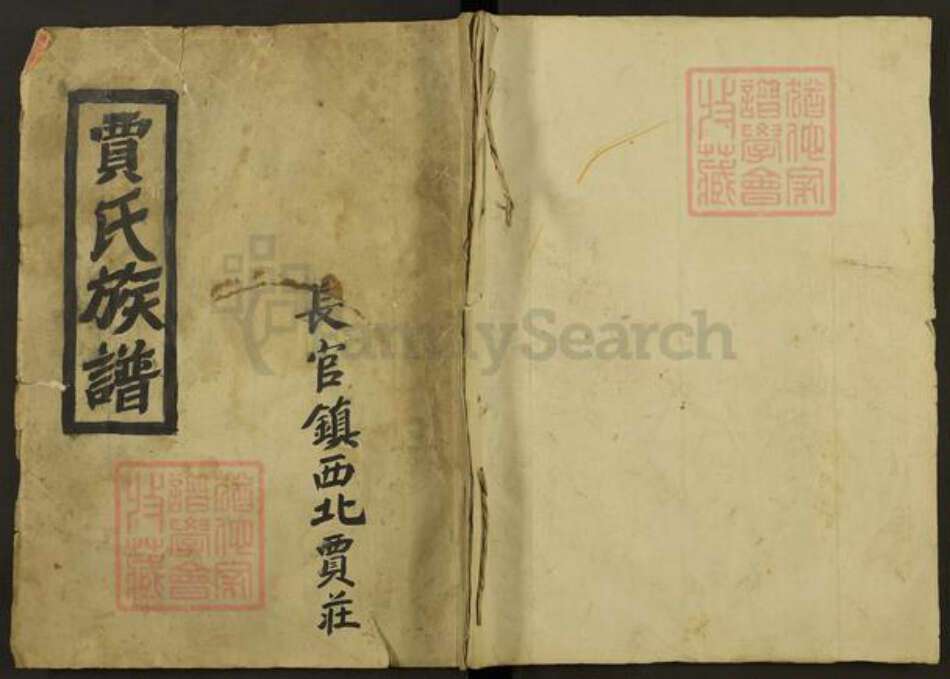 賈氏族譜
長官鎮西北賈莊
FamilySearch
猶他家
譜學會
收藏
猶他家
譜學會
收藏